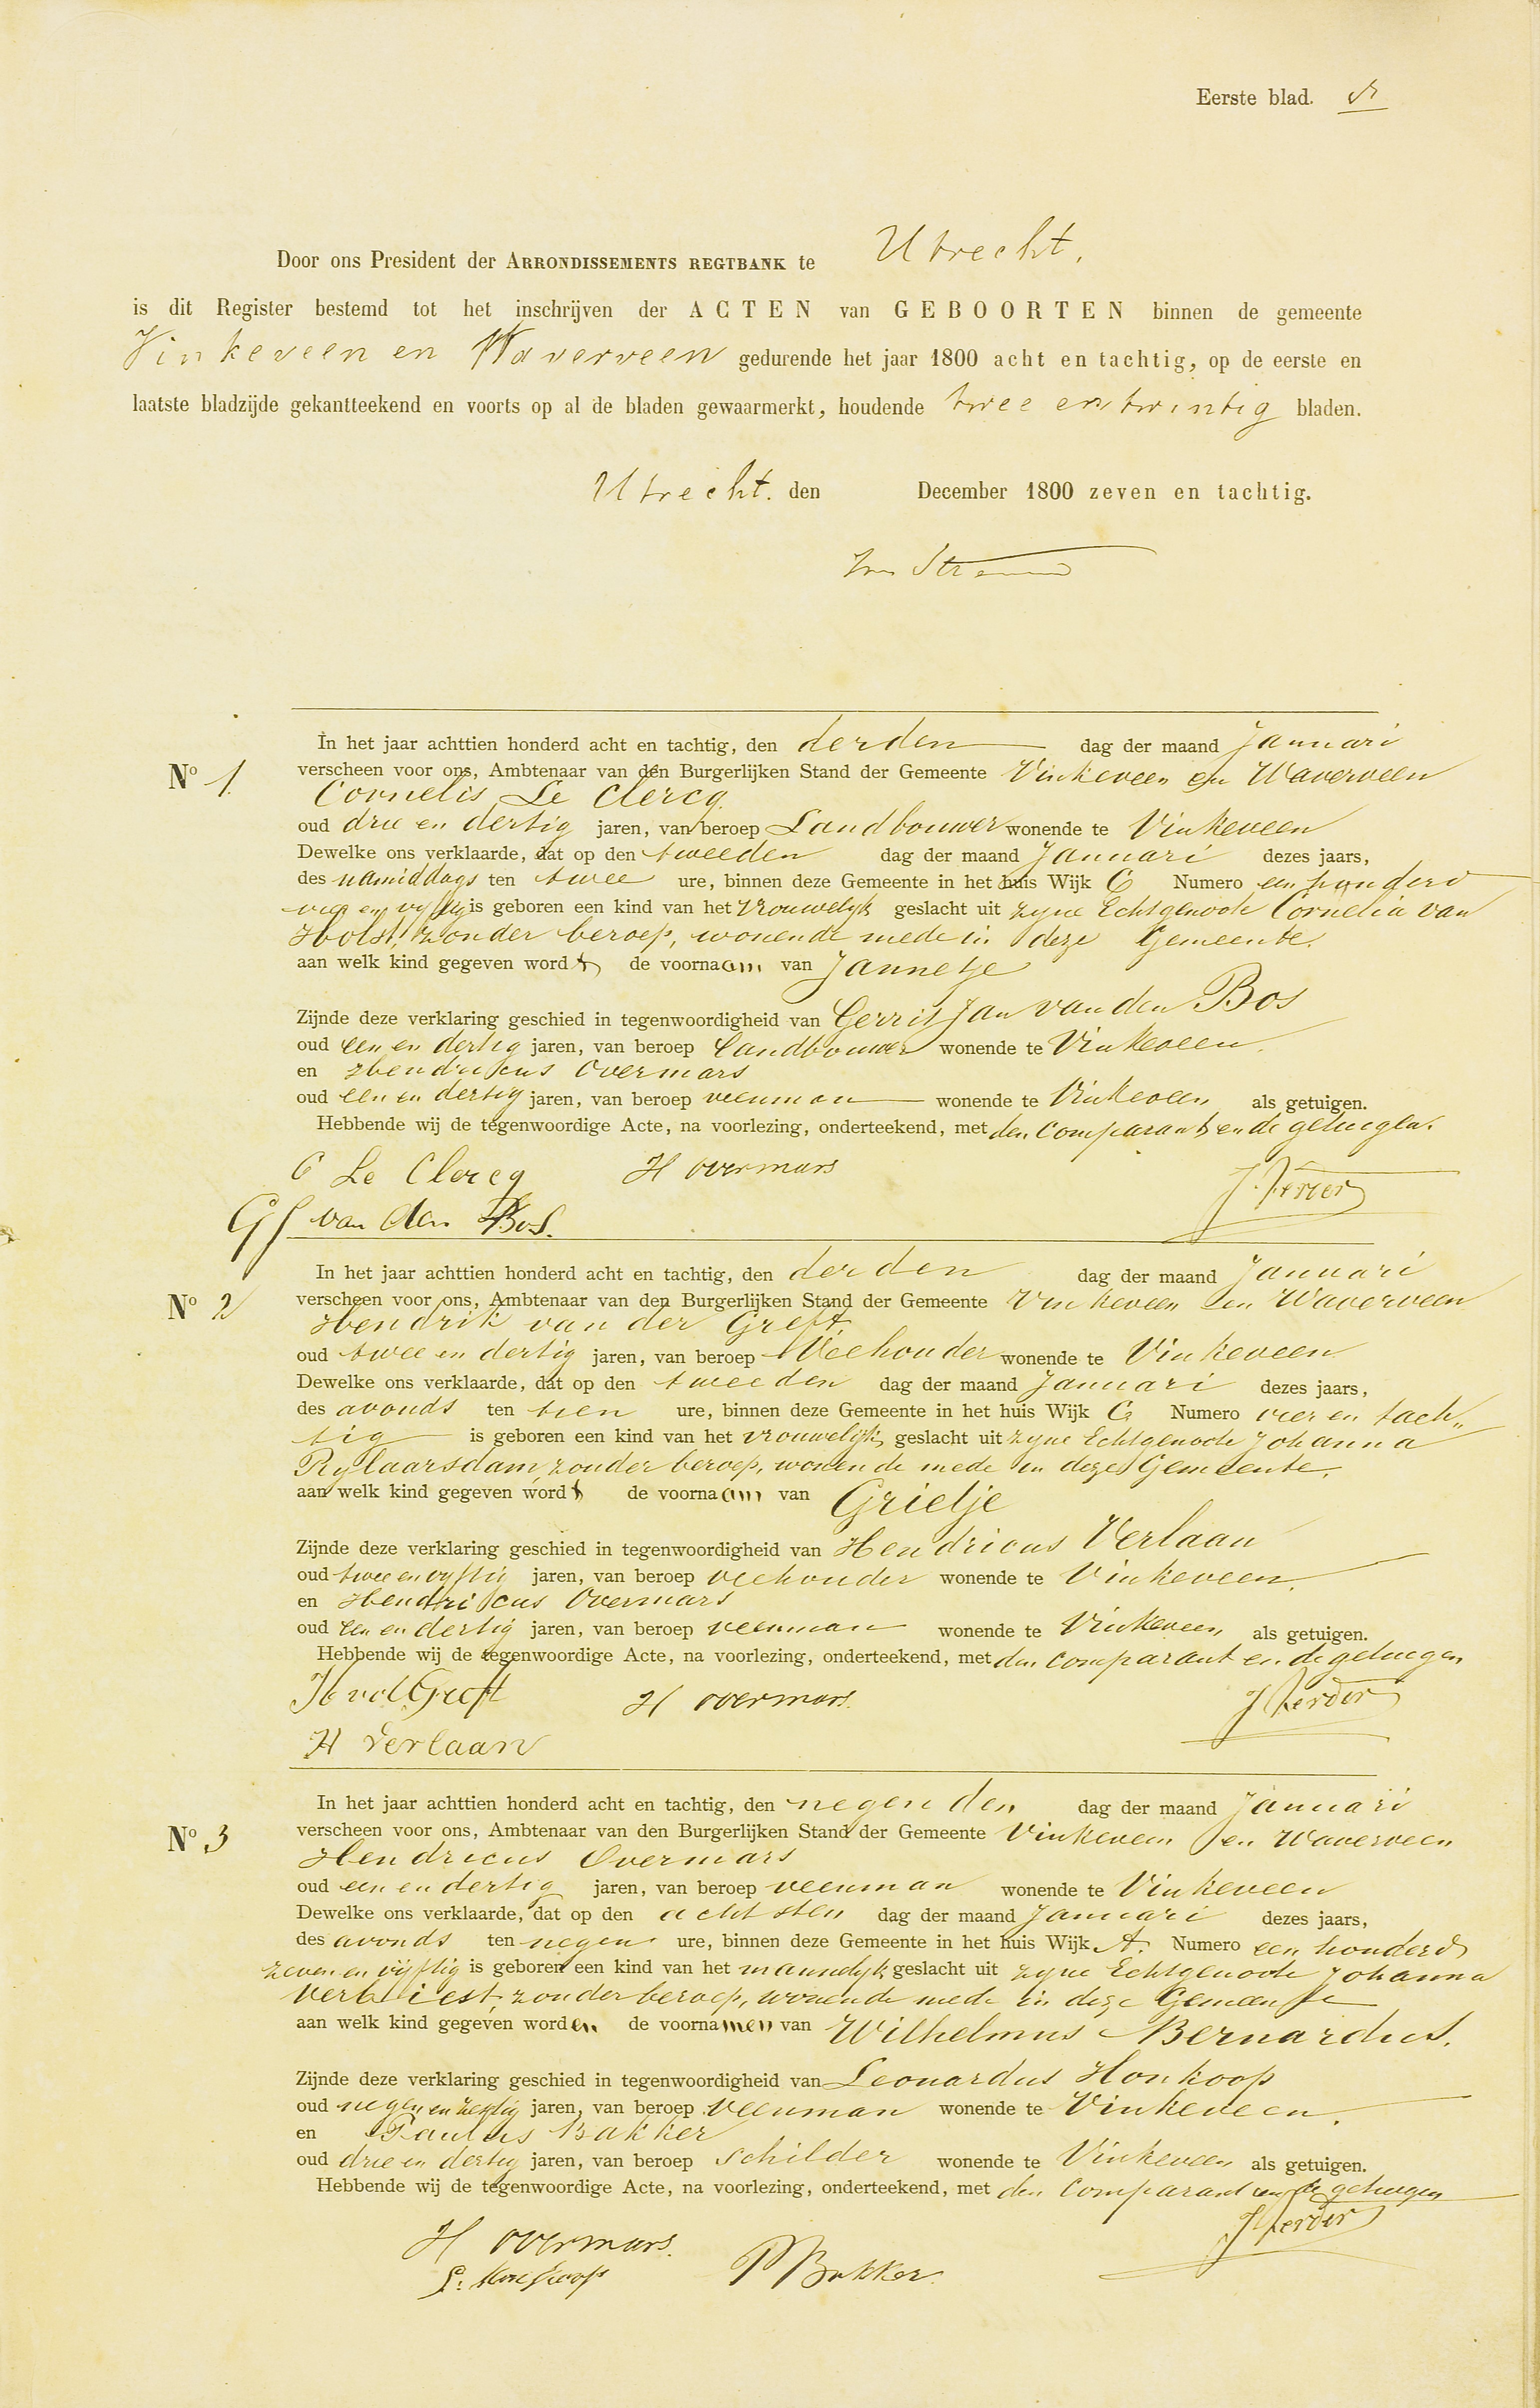 Eerste blad.
Door ons President der ARRONDISSEMENTS REGTBANK te Utrecht.
is dit Register bestemd tot het inschrijven der ACTEN van GEBOORTEN binnen de gemeente
Vinkeveen en Waverveen gedurende het jaar 1800 acht en tachtig, op de eerste en
laatste bladzijde gekantteekend en voorts op al de bladen gewaarmerkt, houdende twee en twintig bladen.
Utrecht. den December 1800 zeven en tachtig.
In het jaar achttien honderd acht en tachtig, den derden dag der maand Januari
No 1. verscheen voor ons, Ambtenaar van den Burgerlijken Stand der Gemeente Vinkeveen en Waverveen
Cornelis Le Clercq
oud drie en dertig jaren, van beroep Landbouwer wonende te Vinkeveen
Dewelke ons verklaarde, dat op den tweeden dag der maand Januari dezes jaars,
des namiddags ten twee ure, binnen deze Gemeente in het huis Wijk C Numero een honderd
vier en vyftig is geboren een kind van het vrouwelyk geslacht uit zyne Echtgenoote Cornelia van
Holst, zonder beroep, wonende mede in deze Gemeente.
aan welk kind gegeven wordt de voornaam van Jannetje
Zijnde deze verklaring geschied in tegenwoordigheid van Gerrit Jan van den Bos
oud een en dertig jaren, van beroep Landbouwer wonende te Vinkeveen.
en Hendricus Overmars
oud een en dertig jaren, van beroep veenman wonende te Vinkeveen als getuigen.
Hebbende wij de tegenwoordige Acte, na voorlezing, onderteekend, met den Comparant en de getuigen.
C Le Clercq H Overmars
GJ van den Bos.
In het jaar achttien honderd acht en tachtig, den derden dag der maand Januari
No 2 verscheen voor ons, Ambtenaar van den Burgerlijken Stand der Gemeente Vinkeveen en Waverveen
Hendrik van der Greft
oud twee en dertig jaren, van beroep Veehouder wonende te Vinkeveen
Dewelke ons verklaarde, dat op den tweeden dag der maand Januari dezes jaars,
des avonds ten tien ure, binnen deze Gemeente in het huis Wijk C Numero vier en tach„
tig is geboren een kind van het vrouwelijk geslacht uit zyne Echtgenoote Johanna
Rylaarsdam, zonder beroep, wonende mede in deze Gemeente.
aan welk kind gegeven wordt de voornaam van Grietje
Zijnde deze verklaring geschied in tegenwoordigheid van Hendricus Verlaan
oud twee en vyftig jaren, van beroep veehouder wonende te Vinkeveen.
en Hendricus Overmars
oud een en dertig jaren, van beroep veenman wonende te Vinkeveen als getuigen.
Hebbende wij de tegenwoordige Acte, na voorlezing, onderteekend, met den comparant en de getuigen
H vd Greft H Overmars.
H Verlaan
In het jaar achttien honderd acht en tachtig, den negenden dag der maand Januari
No 3 verscheen voor ons, Ambtenaar van den Burgerlijken Stand der Gemeente Vinkeveen en Waverveen
Hendricus Overmars
oud een en dertig jaren, van beroep veenman wonende te Vinkeveen
Dewelke ons verklaarde, dat op den achtsten dag der maand Januari dezes jaars,
des avonds ten negen ure, binnen deze Gemeente in het huis Wijk A. Numero een honderd
zeven en vijftig is geboren een kind van het mannelyk geslacht uit zyne Echtgenoote Johanna
Verbiest, zonder beroep, wonende mede in deze Gemeente
aan welk kind gegeven worden de voornamen van Wilhelmus Bernardus.
Zijnde deze verklaring geschied in tegenwoordigheid van Leonardus Honkoop
oud negen en zestig jaren, van beroep veenman wonende te Vinkeveen.
en Paulus Bakker
oud drie en dertig jaren, van beroep schilder wonende te Vinkeveen als getuigen.
Hebbende wij de tegenwoordige Acte, na voorlezing, onderteekend, met den Comparant en de getuigen
H Overmars.
L: Honkoop P Bakker.